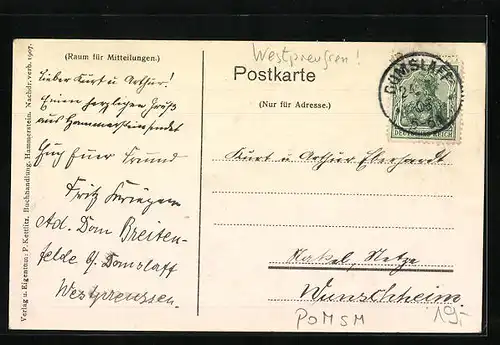 Westpreußen!
(Raum für Mitteilungen.)
Postkarte
(Nur für Adresse.)
DOMSLAFF
24
DEUTSCHES REICH
Lieber Kurt u Arthur!
Einen herzlichen Gruß
aus Hammerstein sendet
Euer Freund
Fritz
Ad. Dom Breiten-
felde b/ Domslaff
Westpreussen.
Kurt u Arthur Eberhardt
Nakel, Netze
Wunschheim
POMSM
19,-
Verlag u. Eigentum: P. Kettlitz, Buchhandlung, Hammerstein. Nachdr. verb. 1907.